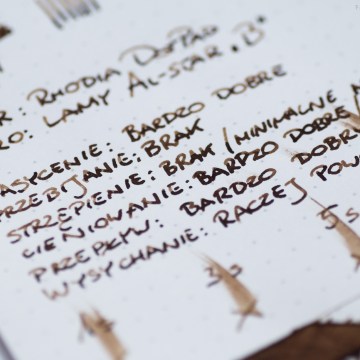 R: RHODIA DOTPAD
RO: LAMY AL-STAR "B"
ASYCENIE: BARDZO DOBRE
PRZEBIJANIE: BRAK
STRZĘPIENIE: BRAK / MINIMALNE
CIENIOWANIE: BARDZO DOBRE /
PRZEPŁYW: BARDZO DOBR
WYSYCHANIE: RACZEJ POW
3s 5s